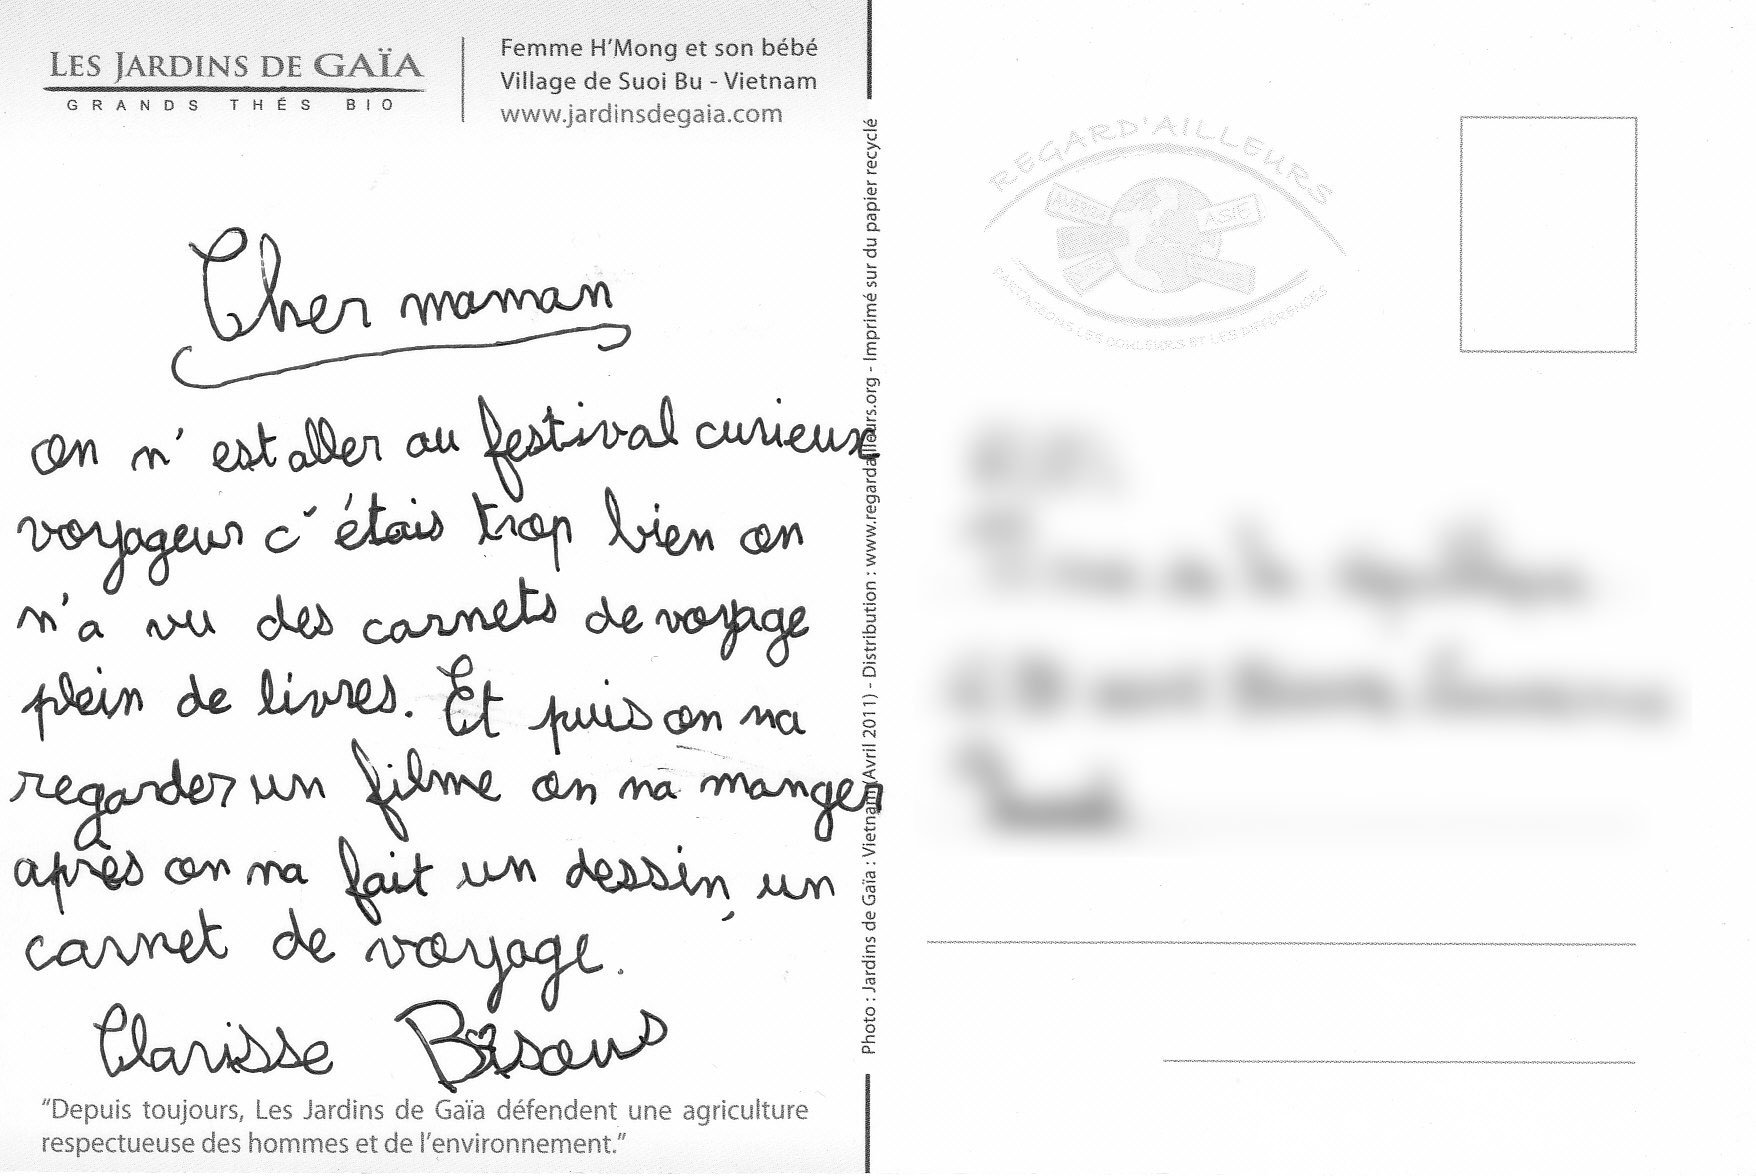 LES JARDINS DE GAÏA
GRANDS THÉS BIO
Femme H'Mong et son bébé
Village de Suoi Bu - Vietnam
www.jardinsdegaia.com
Cher maman
on n' est aller au festival curieux
voyageur c' étais trop bien on
n'a vu des carnets de voyage
plein de livres. Et puis on na
regarder un filme on na manger
après on na fait un dessin, un
carnet de voyage.
Clarisse Bisous
"Depuis toujours, Les Jardins de Gaïa défendent une agriculture
respectueuse des hommes et de l'environnement."
Photo : Jardins de Gaïa : Vietnam (Avril 2011) - Distribution : www.regardailleurs.org - Imprimé sur du papier recyclé
REGARD'AILLEURS
ASIE